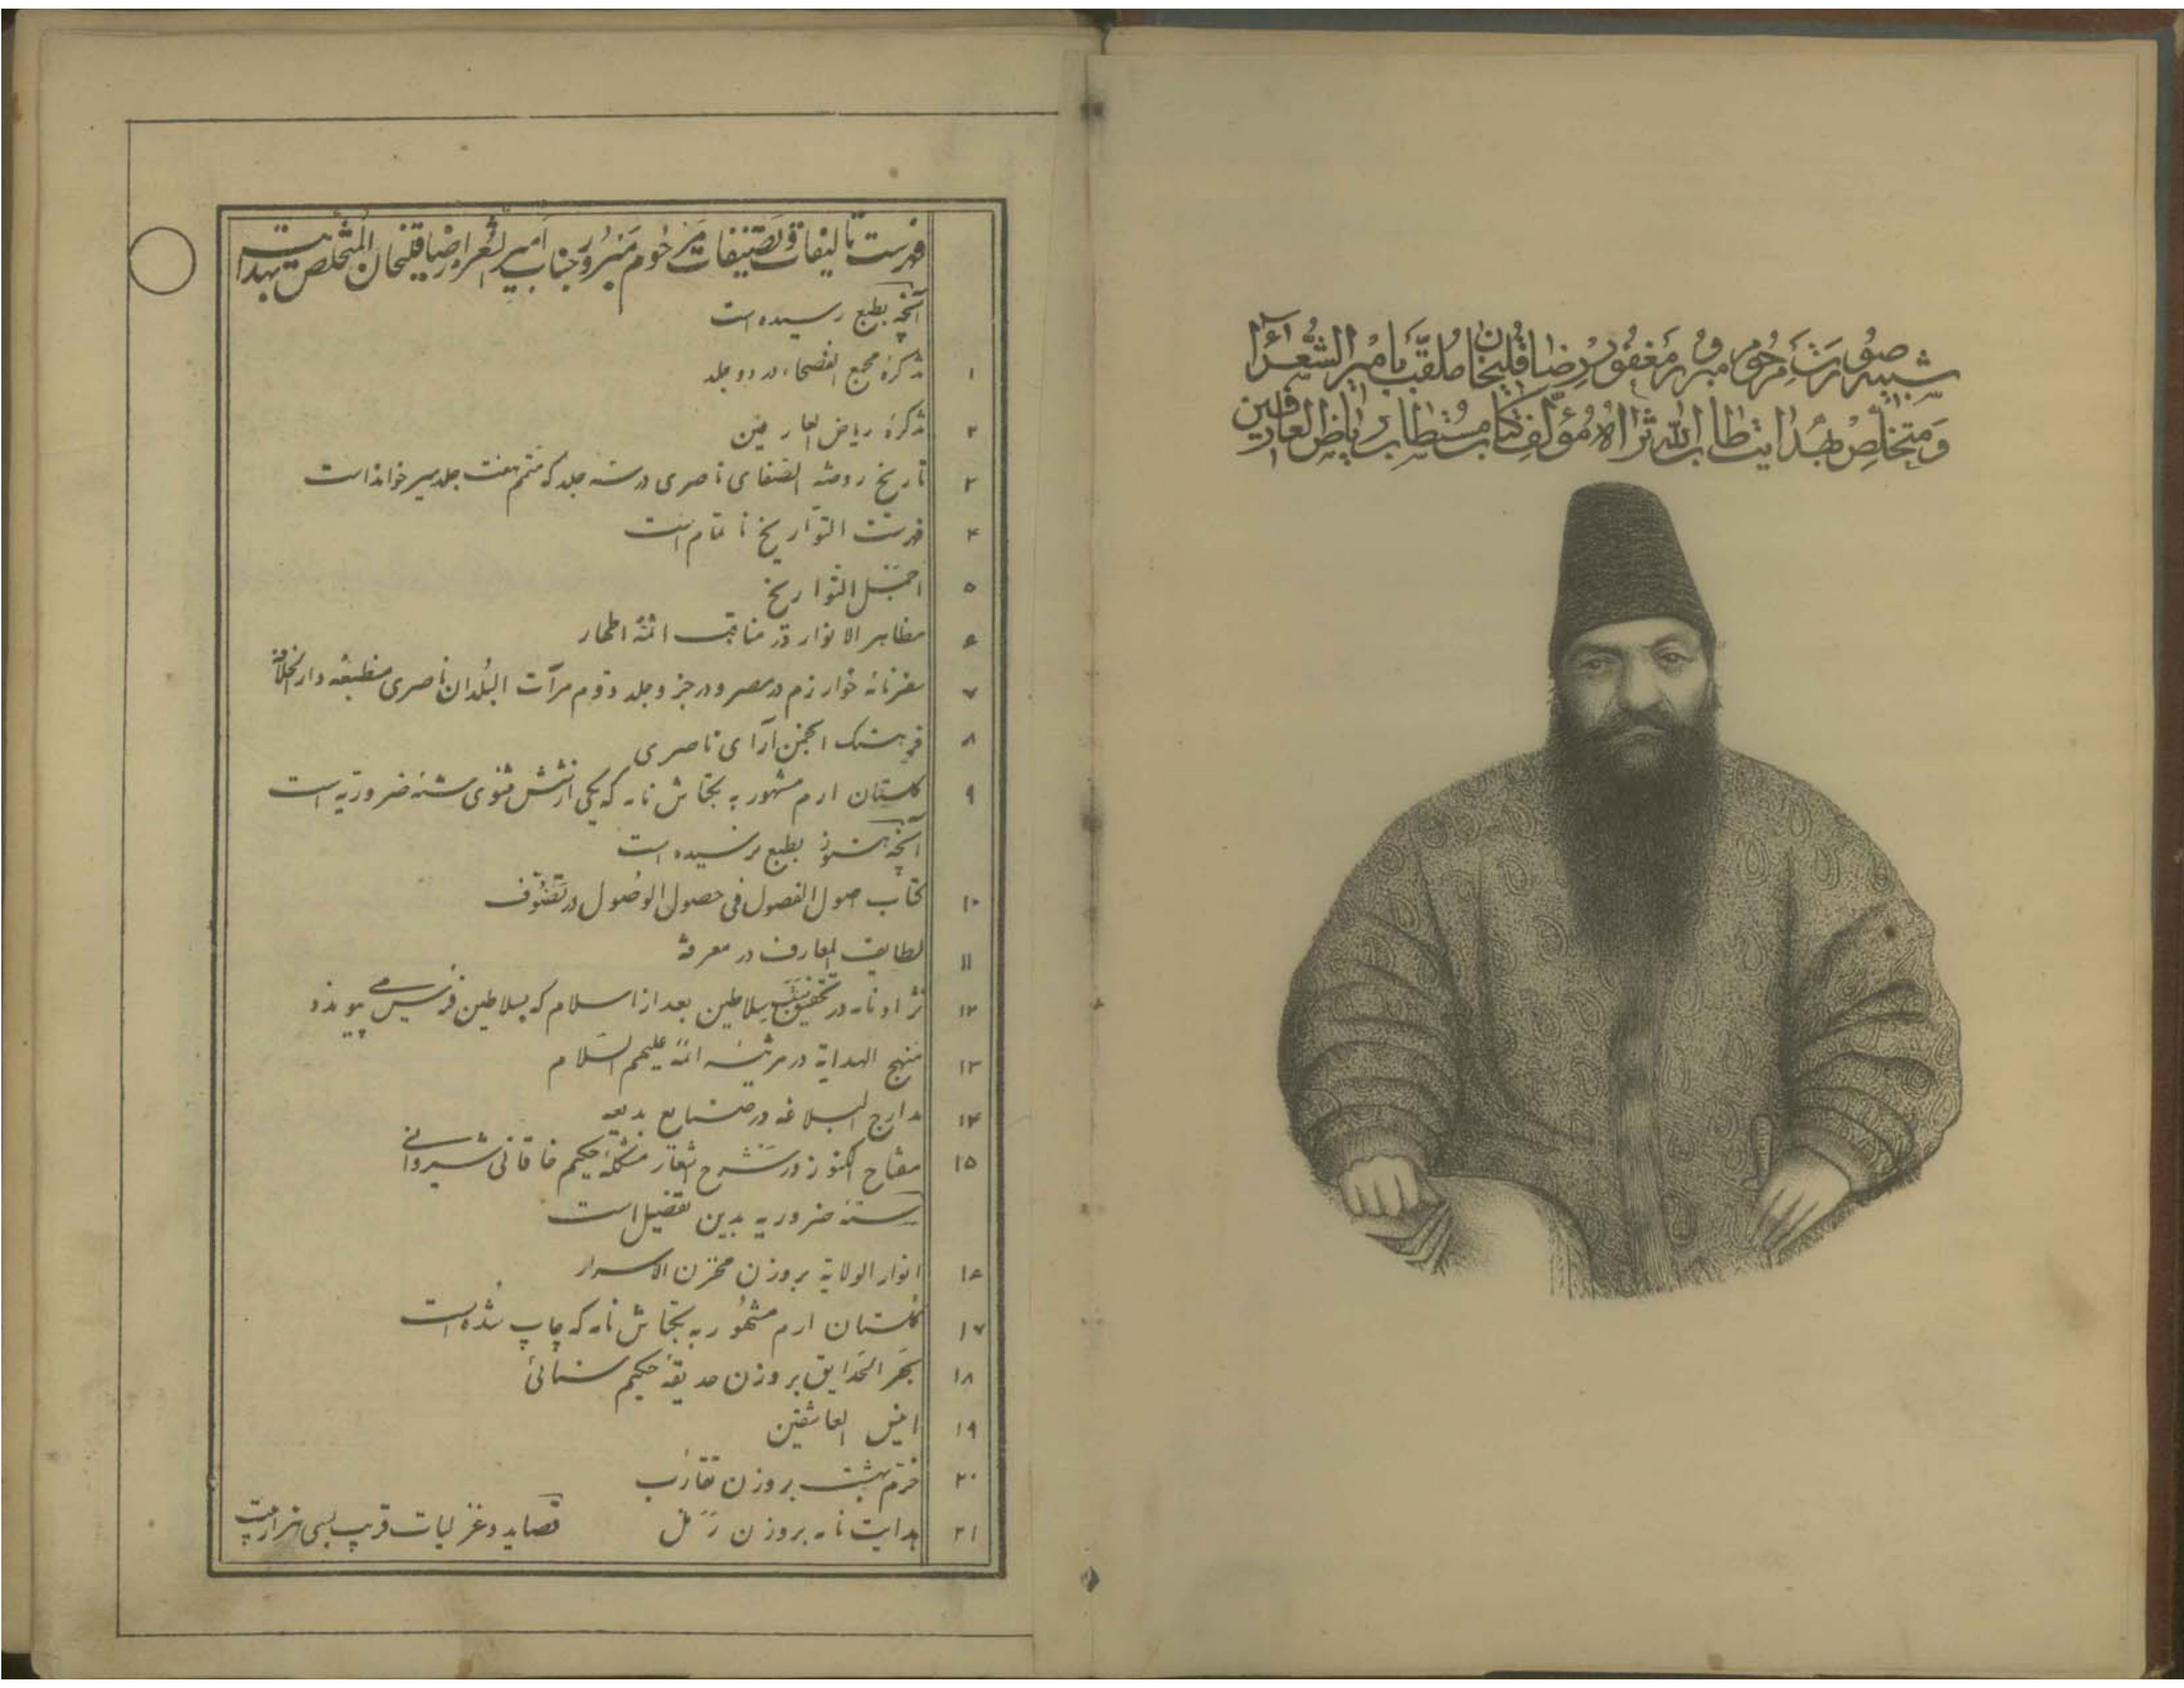 شبیه صورت مرحوم مبرور مغفور رضا قلیخان ملقب بامیر الشعرآء
و متخلص بهدایت طاب الله ثراه مؤلف کتاب مستطاب ریاض العارفین
فهرست تالیفات و تصنیفات مرحوم مبرور جناب امیر الشعرا رضا قلیخان المتخلص بهدایت
آنچه بطبع رسیده است
۱ تذکرهٔ مجمع الفصحاء در دو جلد
۲ تذکرهٔ ریاض العارفین
۳ تاریخ روضة الصفای ناصری در سه جلد که متمم هفت جلد میرخواند است
۴ فهرست التواریخ ناتمام است
۵ اجمل التواریخ
۶ مظاهر الانوار در مناقب ائمهٔ اطهار
۷ سفرنامهٔ خوارزم در مصر و در جزو جلد دوم مرآت البلدان ناصری منطبعه دار الخلافه
۸ فرهنگ انجمن آرای ناصری
۹ گلستان ارم مشهور به بکتاش نامه که یکی از شش مثنوی ستهٔ ضروریه است
آنچه هنوز بطبع نرسیده است
۱۰ کتاب اصول الفصول فی حصول الوصول در تصوف
۱۱ لطایف المعارف در معرفة
۱۲ نژاد نامه در تحقیق نسب سلاطین بعد از اسلام که بسلاطین فرس می پیوندد
۱۳ منهج الهدایة در مرثیه ائمه علیهم السلام
۱۴ مدارج البلاغه در صنایع بدیعه
۱۵ مفتاح الکنوز در شرح اشعار مشکلهٔ حکیم خاقانی شیروانی
ستهٔ ضروریه بدین تفصیل است
۱۶ انوار الولایة بر وزن مخزن الاسرار
۱۷ گلستان ارم مشهور به بکتاش نامه که چاپ شده است
۱۸ بحر الحدایق بر وزن حدیقهٔ حکیم سنائی
۱۹ انیس العاشقین
۲۰ خرم بهشت بر وزن تقارب
۲۱ هدایت نامه بر وزن رمل قصاید و غزلیات قریب بسی هزار بیت